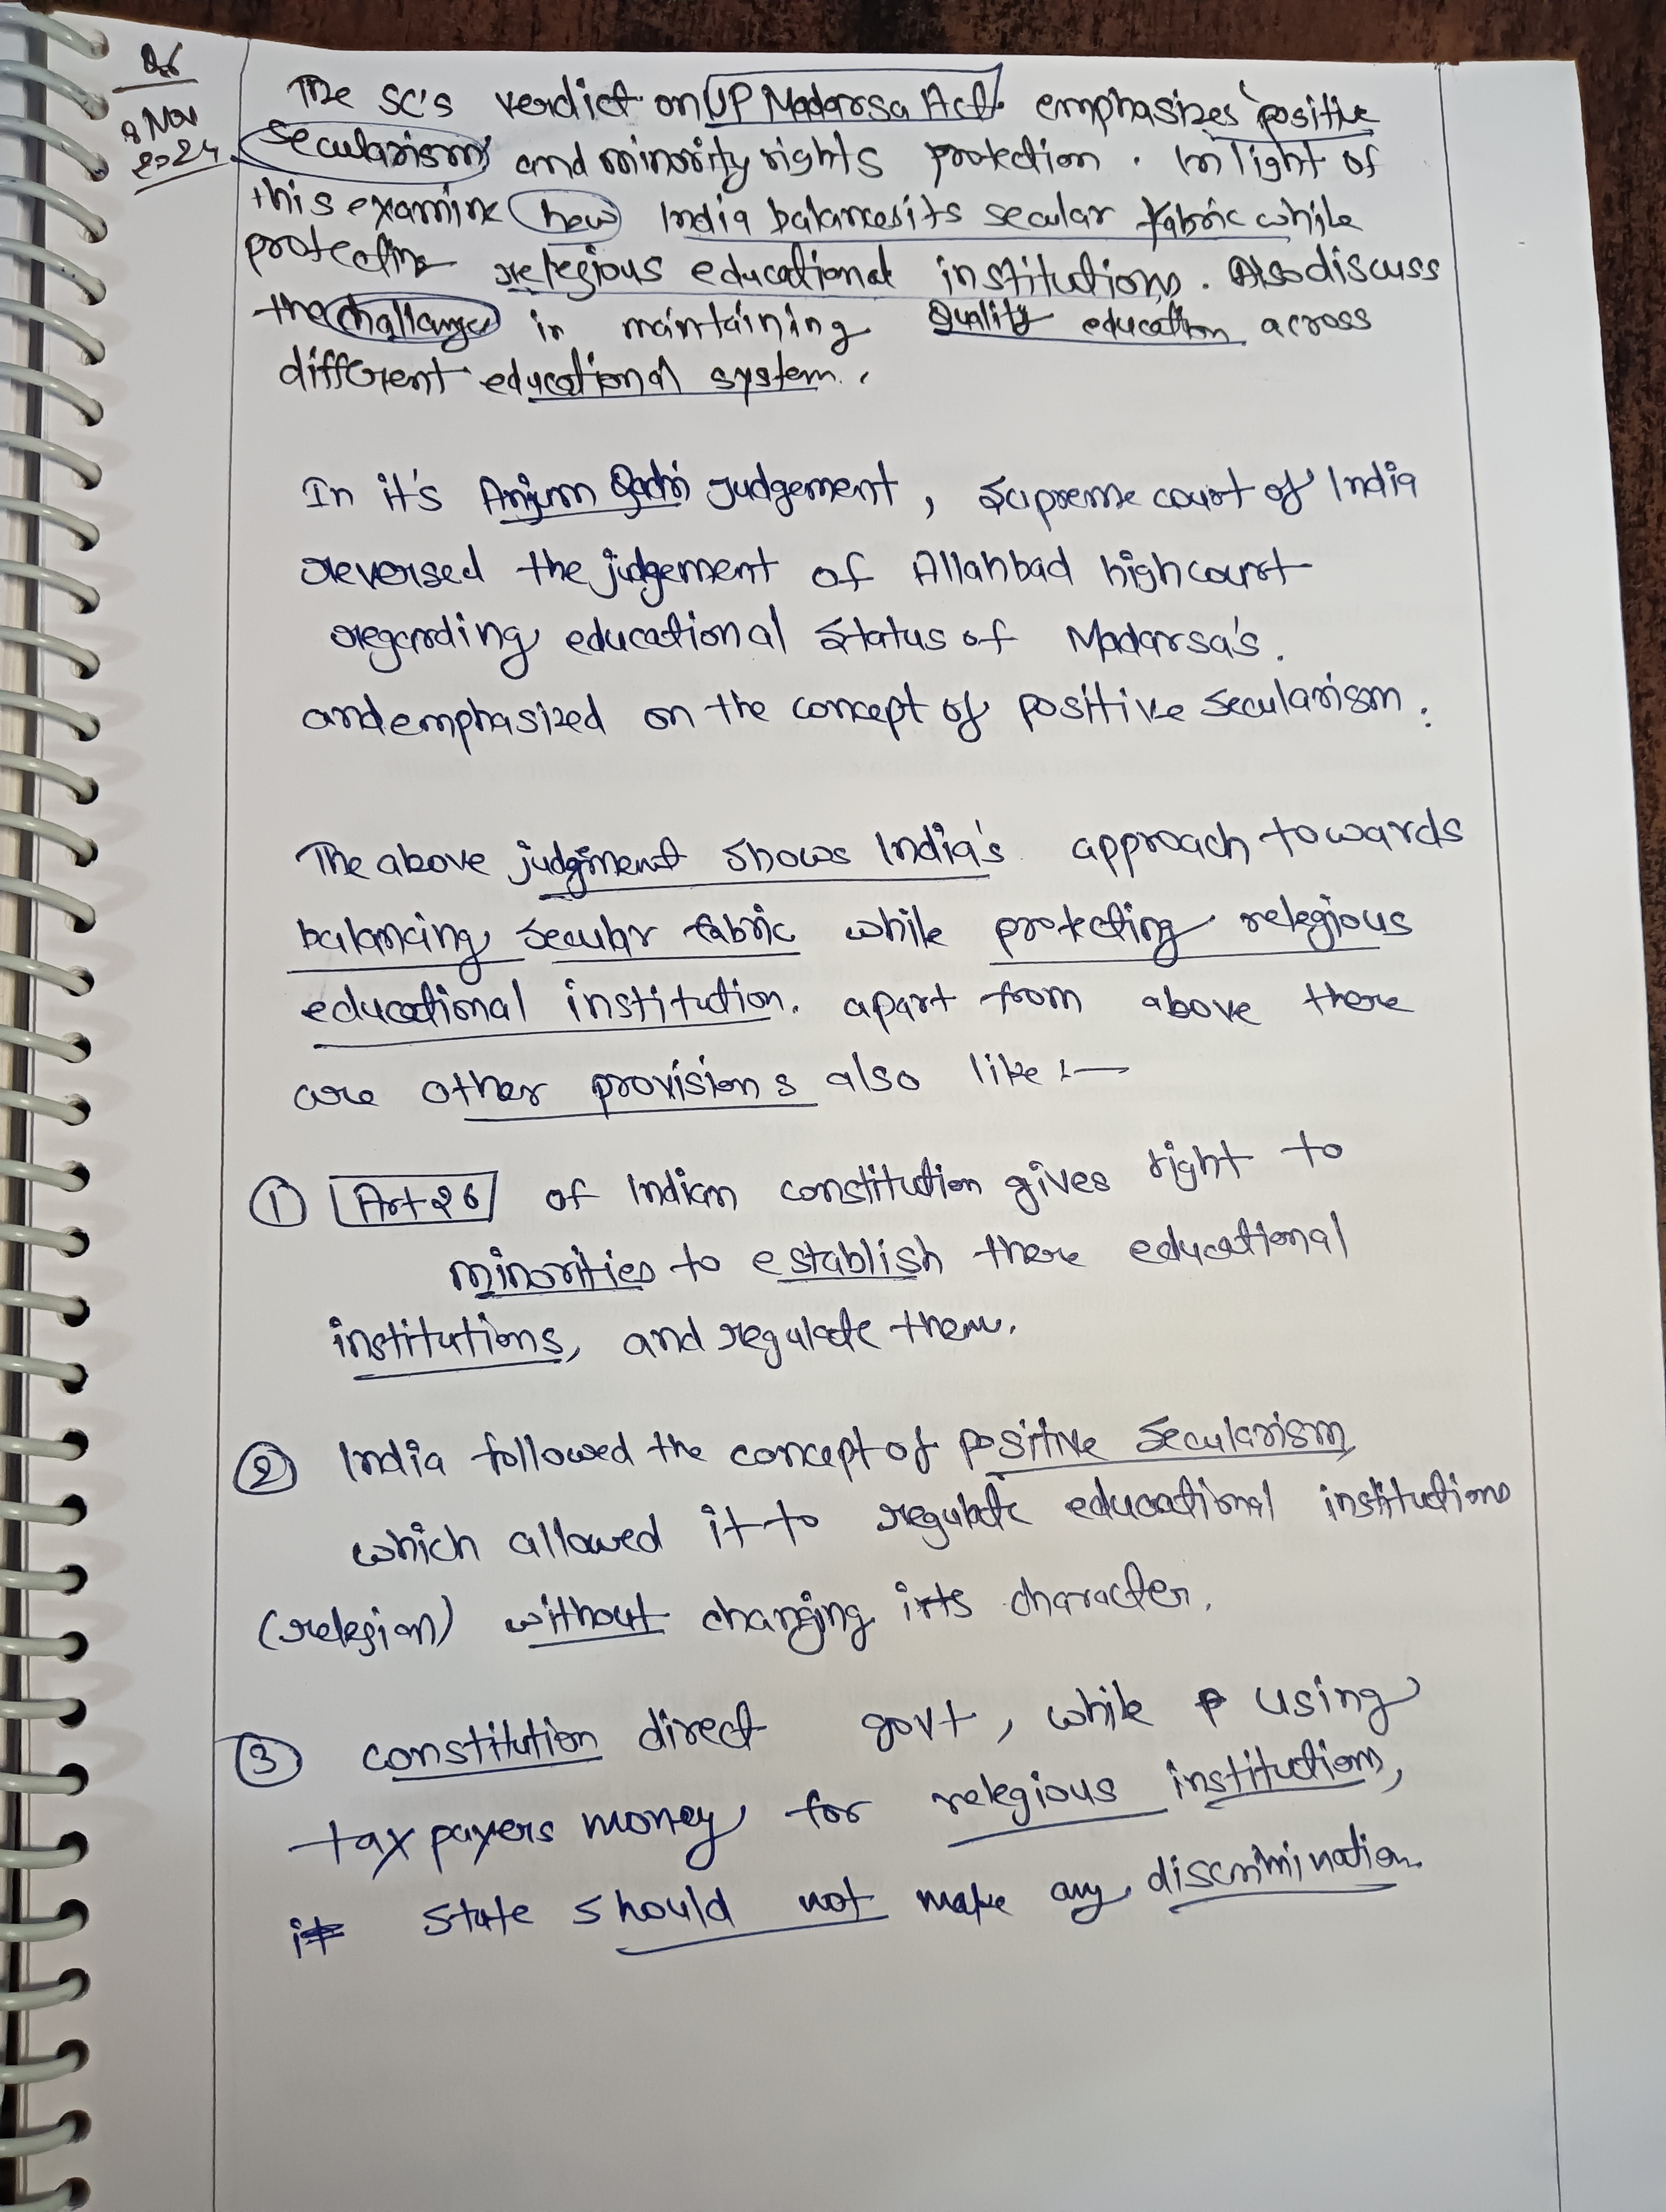 Q.6
8 Nov
2024.
The SC's verdict on UP Madarsa Act emphasizes 'positive
secularism' and minority rights protection. In light of
this examine how India balances its secular fabric while
protecting relegious educational institutions. Also discuss
the challange in maintaining Quality education across
different educational system.
In it's Anjum Qadri judgement, Supreme court of India
reversed the judgement of Allahbad high court
regarding educational status of Madarsa's.
and emphasized on the concept of positive secularism.
The above judgment shows India's approach towards
balancing secular fabric while protecting relegious
educational institution. apart from above there
are other provisions also like :—
① Art 26 of Indian constitution gives right to
minorities to establish there educational
institutions, and regulate them.
② India followed the concept of positive secularism
which allowed it to regulate educational institutions
(relegion) without changing its character.
③ constitution direct govt, while using
tax payers money for relegious institutions,
it state should not make any discrimination.